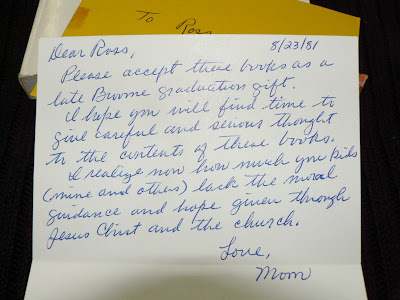 To
Ross
8/23/81
Dear Ross,
Please accept these books as a
late Broome graduation gift.
I hope you will find time to
give careful and serious thought
to the contents of these books.
I realize now how much you kids
(mine and others) lack the moral
guidance and hope given through
Jesus Christ and the church.
Love,
Mom